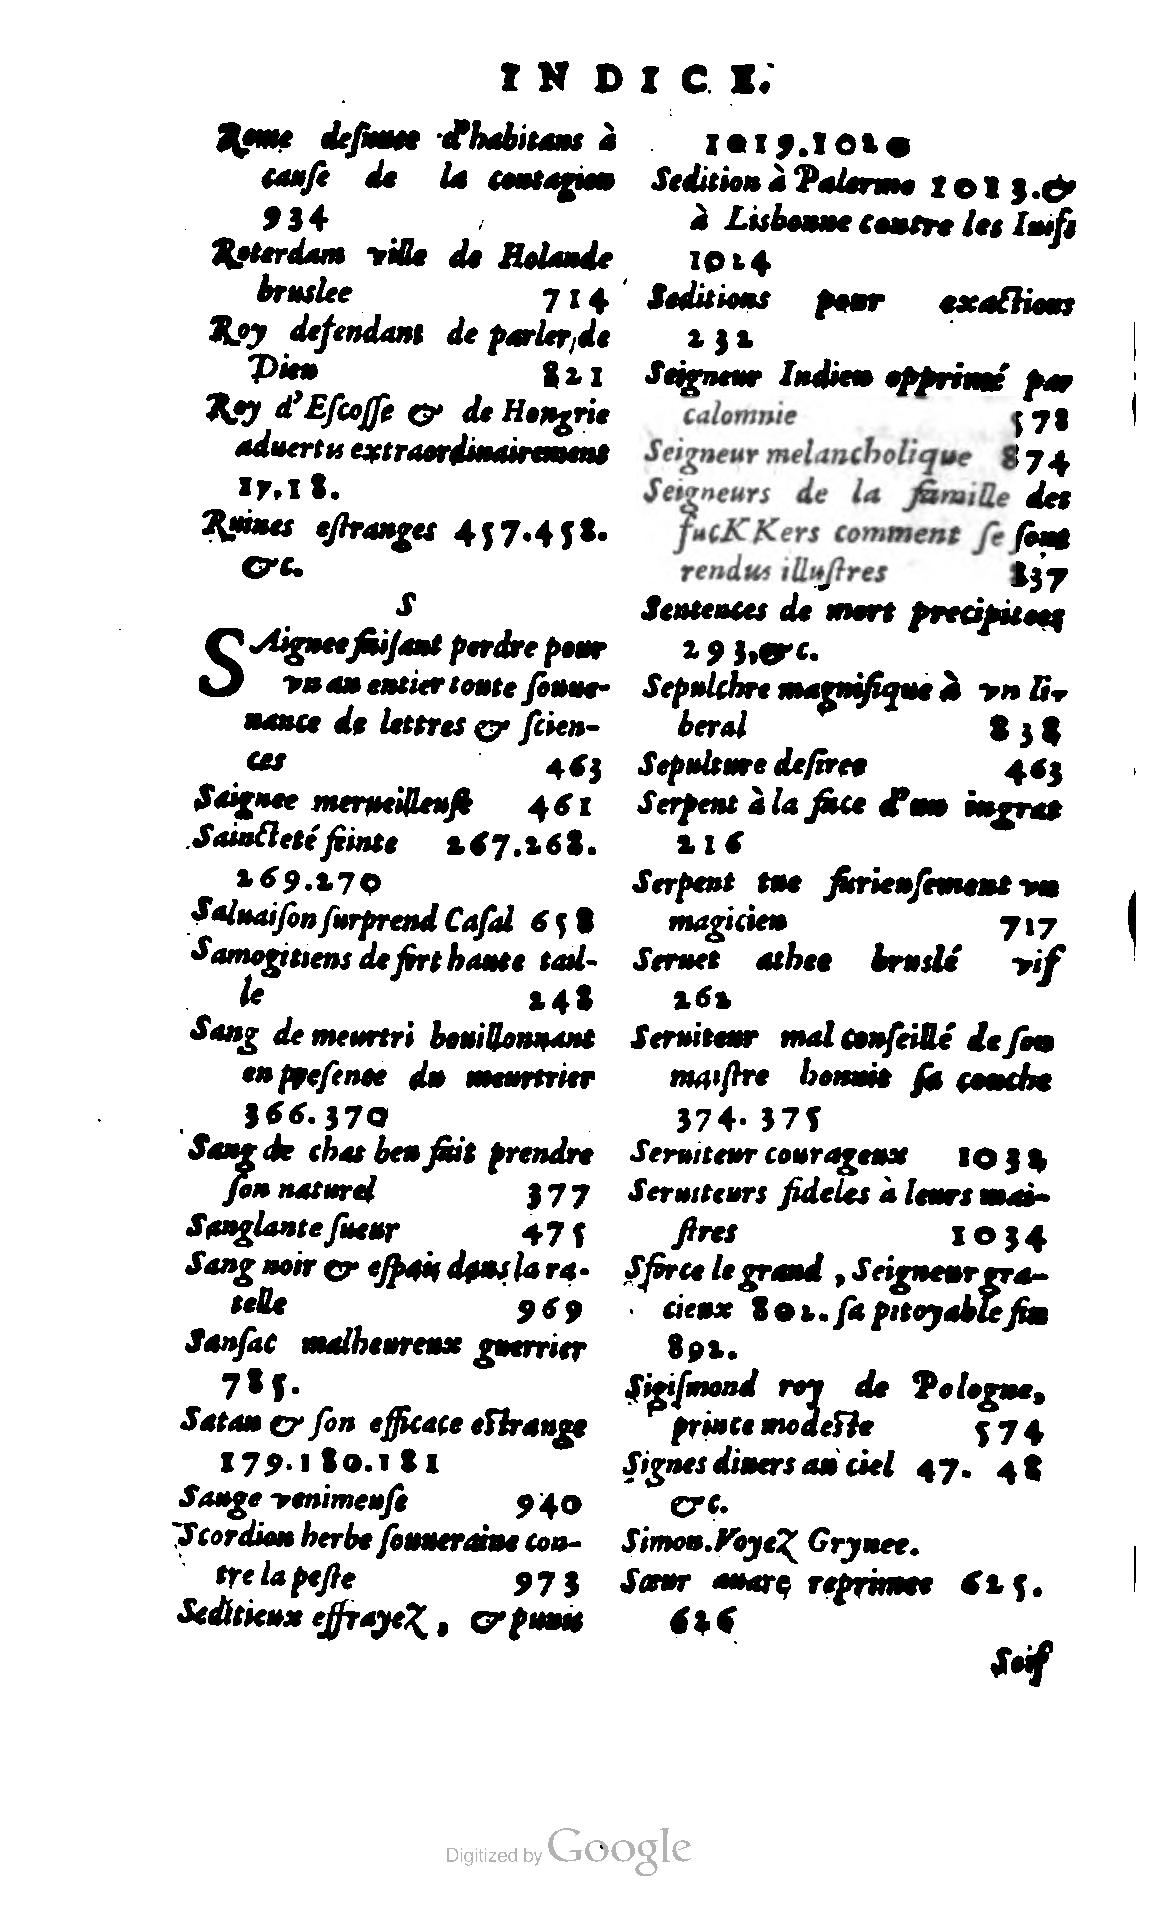 INDICE.
Rome desnuee d'habitans à
cauſe de la contagion
934
Roterdam ville de Holande
bruslee 714
Roy defendant de parler de
Dieu 821
Roy d'Eſcoſſe & de Hongrie
aduertis extraordinairement
17.18.
Ruines eſtranges 457.458.
&c.
S
SAignee faiſant perdre pour
vn an entier toute ſouue-
nance de lettres & ſcien-
ces 463
Saignee merueilleuſe 461
Saincteté feinte 267.268.
269.270
Saluaiſon ſurprend Caſal 658
Samogitiens de fort haute tail-
le 248
Sang de meurtri bouillonnant
en preſence du meurtrier
366.370
Sang de chat beu fait prendre
ſon naturel 377
Sanglante ſueur 475
Sang noir & eſpais dans la ra-
telle 969
Sanſac malheureux guerrier
785.
Satan & ſon efficace eſtrange
179.180.181
Sauge venimeuſe 940
Scordion herbe ſouueraine con-
tre la peſte 973
Seditieux effrayez, & punis
1019.1020
Sedition à Palerme 1023.&
à Lisbonne contre les Iuifs
1024
Seditions pour exactions
232
Seigneur Indien opprimé par
calomnie 578
Seigneur melancholique 874
Seigneurs de la famille des
fucKKers comment ſe ſont
rendus illuſtres 837
Sentences de mort precipitees
293,&c.
Sepulchre magnifique à vn li-
beral 838
Sepulture deſiree 463
Serpent à la face d'un ingrat
216
Serpent tue furieuſement vn
magicien 717
Seruet athee bruslé vif
262
Seruiteur mal conſeillé de ſon
maiſtre honnit ſa couche
374. 375
Seruiteur courageux 1032
Seruiteurs fideles à leurs mai-
ſtres 1034
Sforce le grand, Seigneur gra-
cieux 802. ſa pitoyable fin
892.
Sigiſmond roy de Pologne,
prince modeſte 574
Signes diuers au ciel 47. 48
&c.
Simon. Voyez Grynee.
Sœur auare reprimee 625.
626
Soif
Digitized by Google